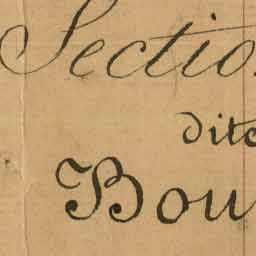 Sectio
dite
Bou